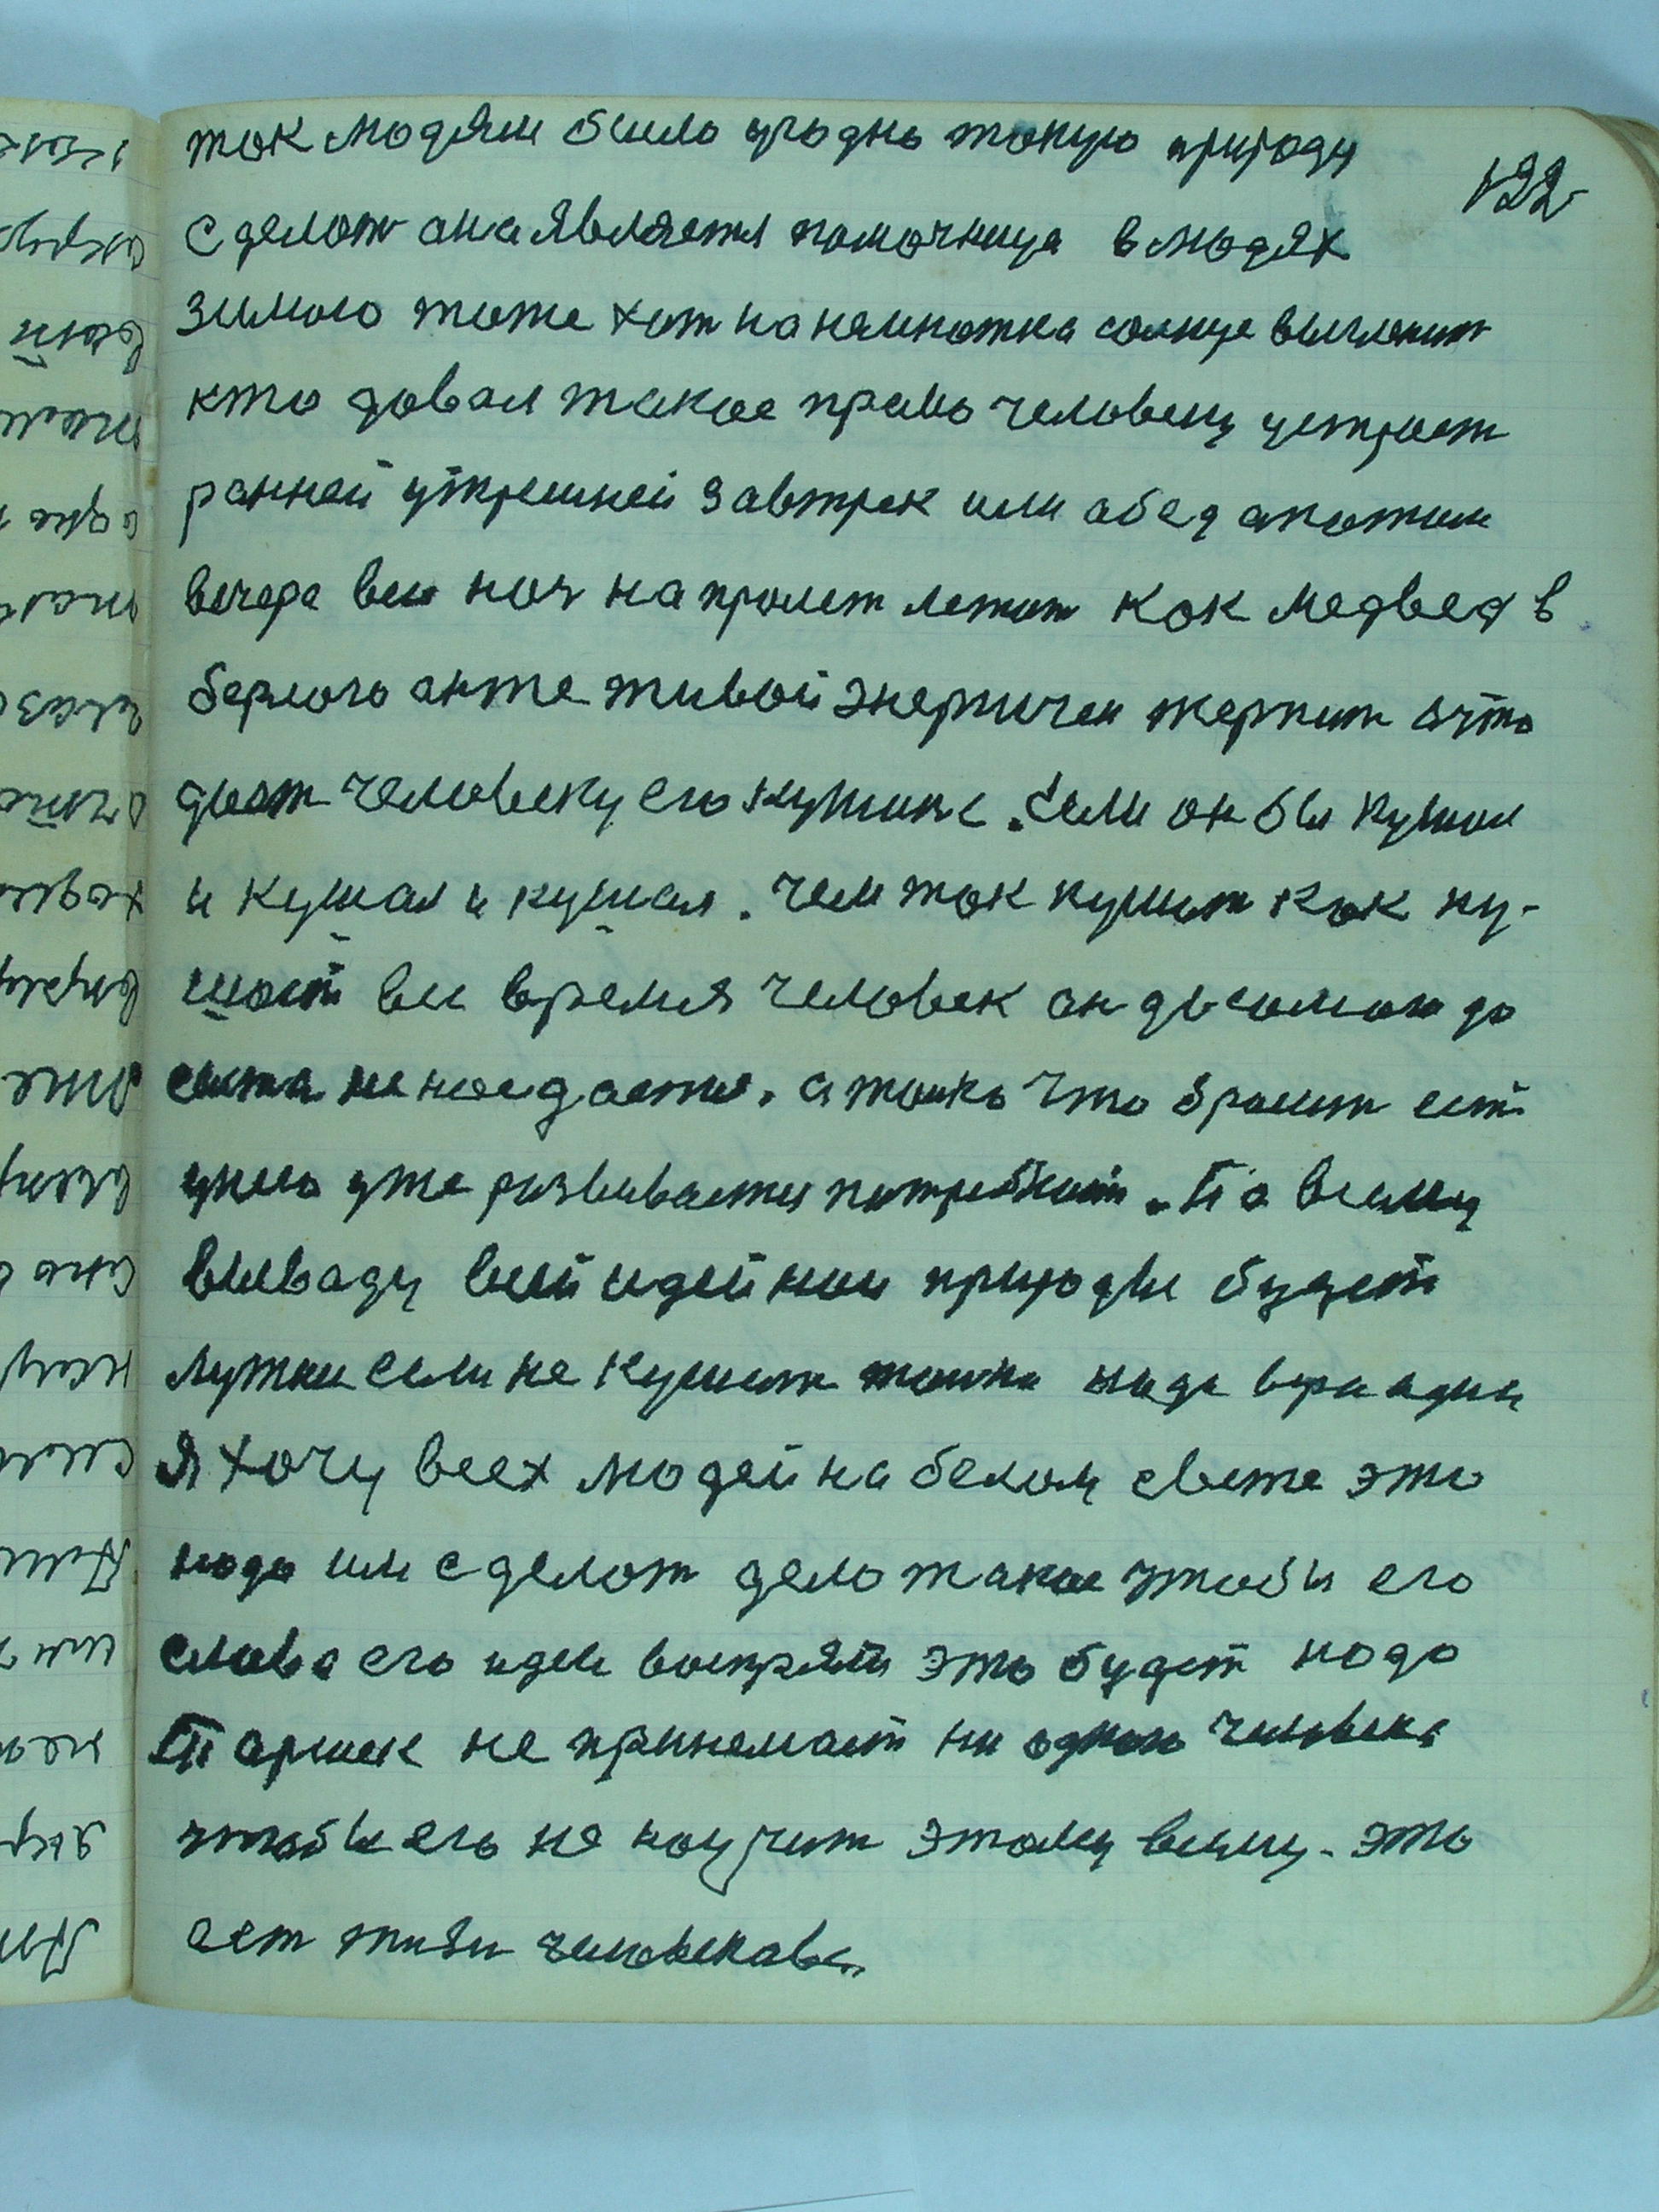 122
так людям было угодно такую природу
сделат она является помочница в людях
зимою тоже хот на нямножка солнце выгленит
кто довал такое право человеку устроет
ранней утрешней завтрек или обед а потом
вечера всю ноч на пролет лежит как медведь в
берлого он же живой энергичен терпит а что
дает человеку его кушине. Если он бы кушал
и кушал и кушал. чем так кушит как ку-
шаит все время человек он до самои до
сыта не наедается. а толко что бросит ест
у него уже развивается потребност. По всиму
выводу всий идейнои природы будет
лутши если не кушат толко надо
Я хочу всех людей на белом свете это
надо им сделат дело такое чтобы его
слова его идеи воспрять это будет надо
Паршек не принемает ни одного человека
чтобы его не научит этому всиму. это
ест жизн человекава.